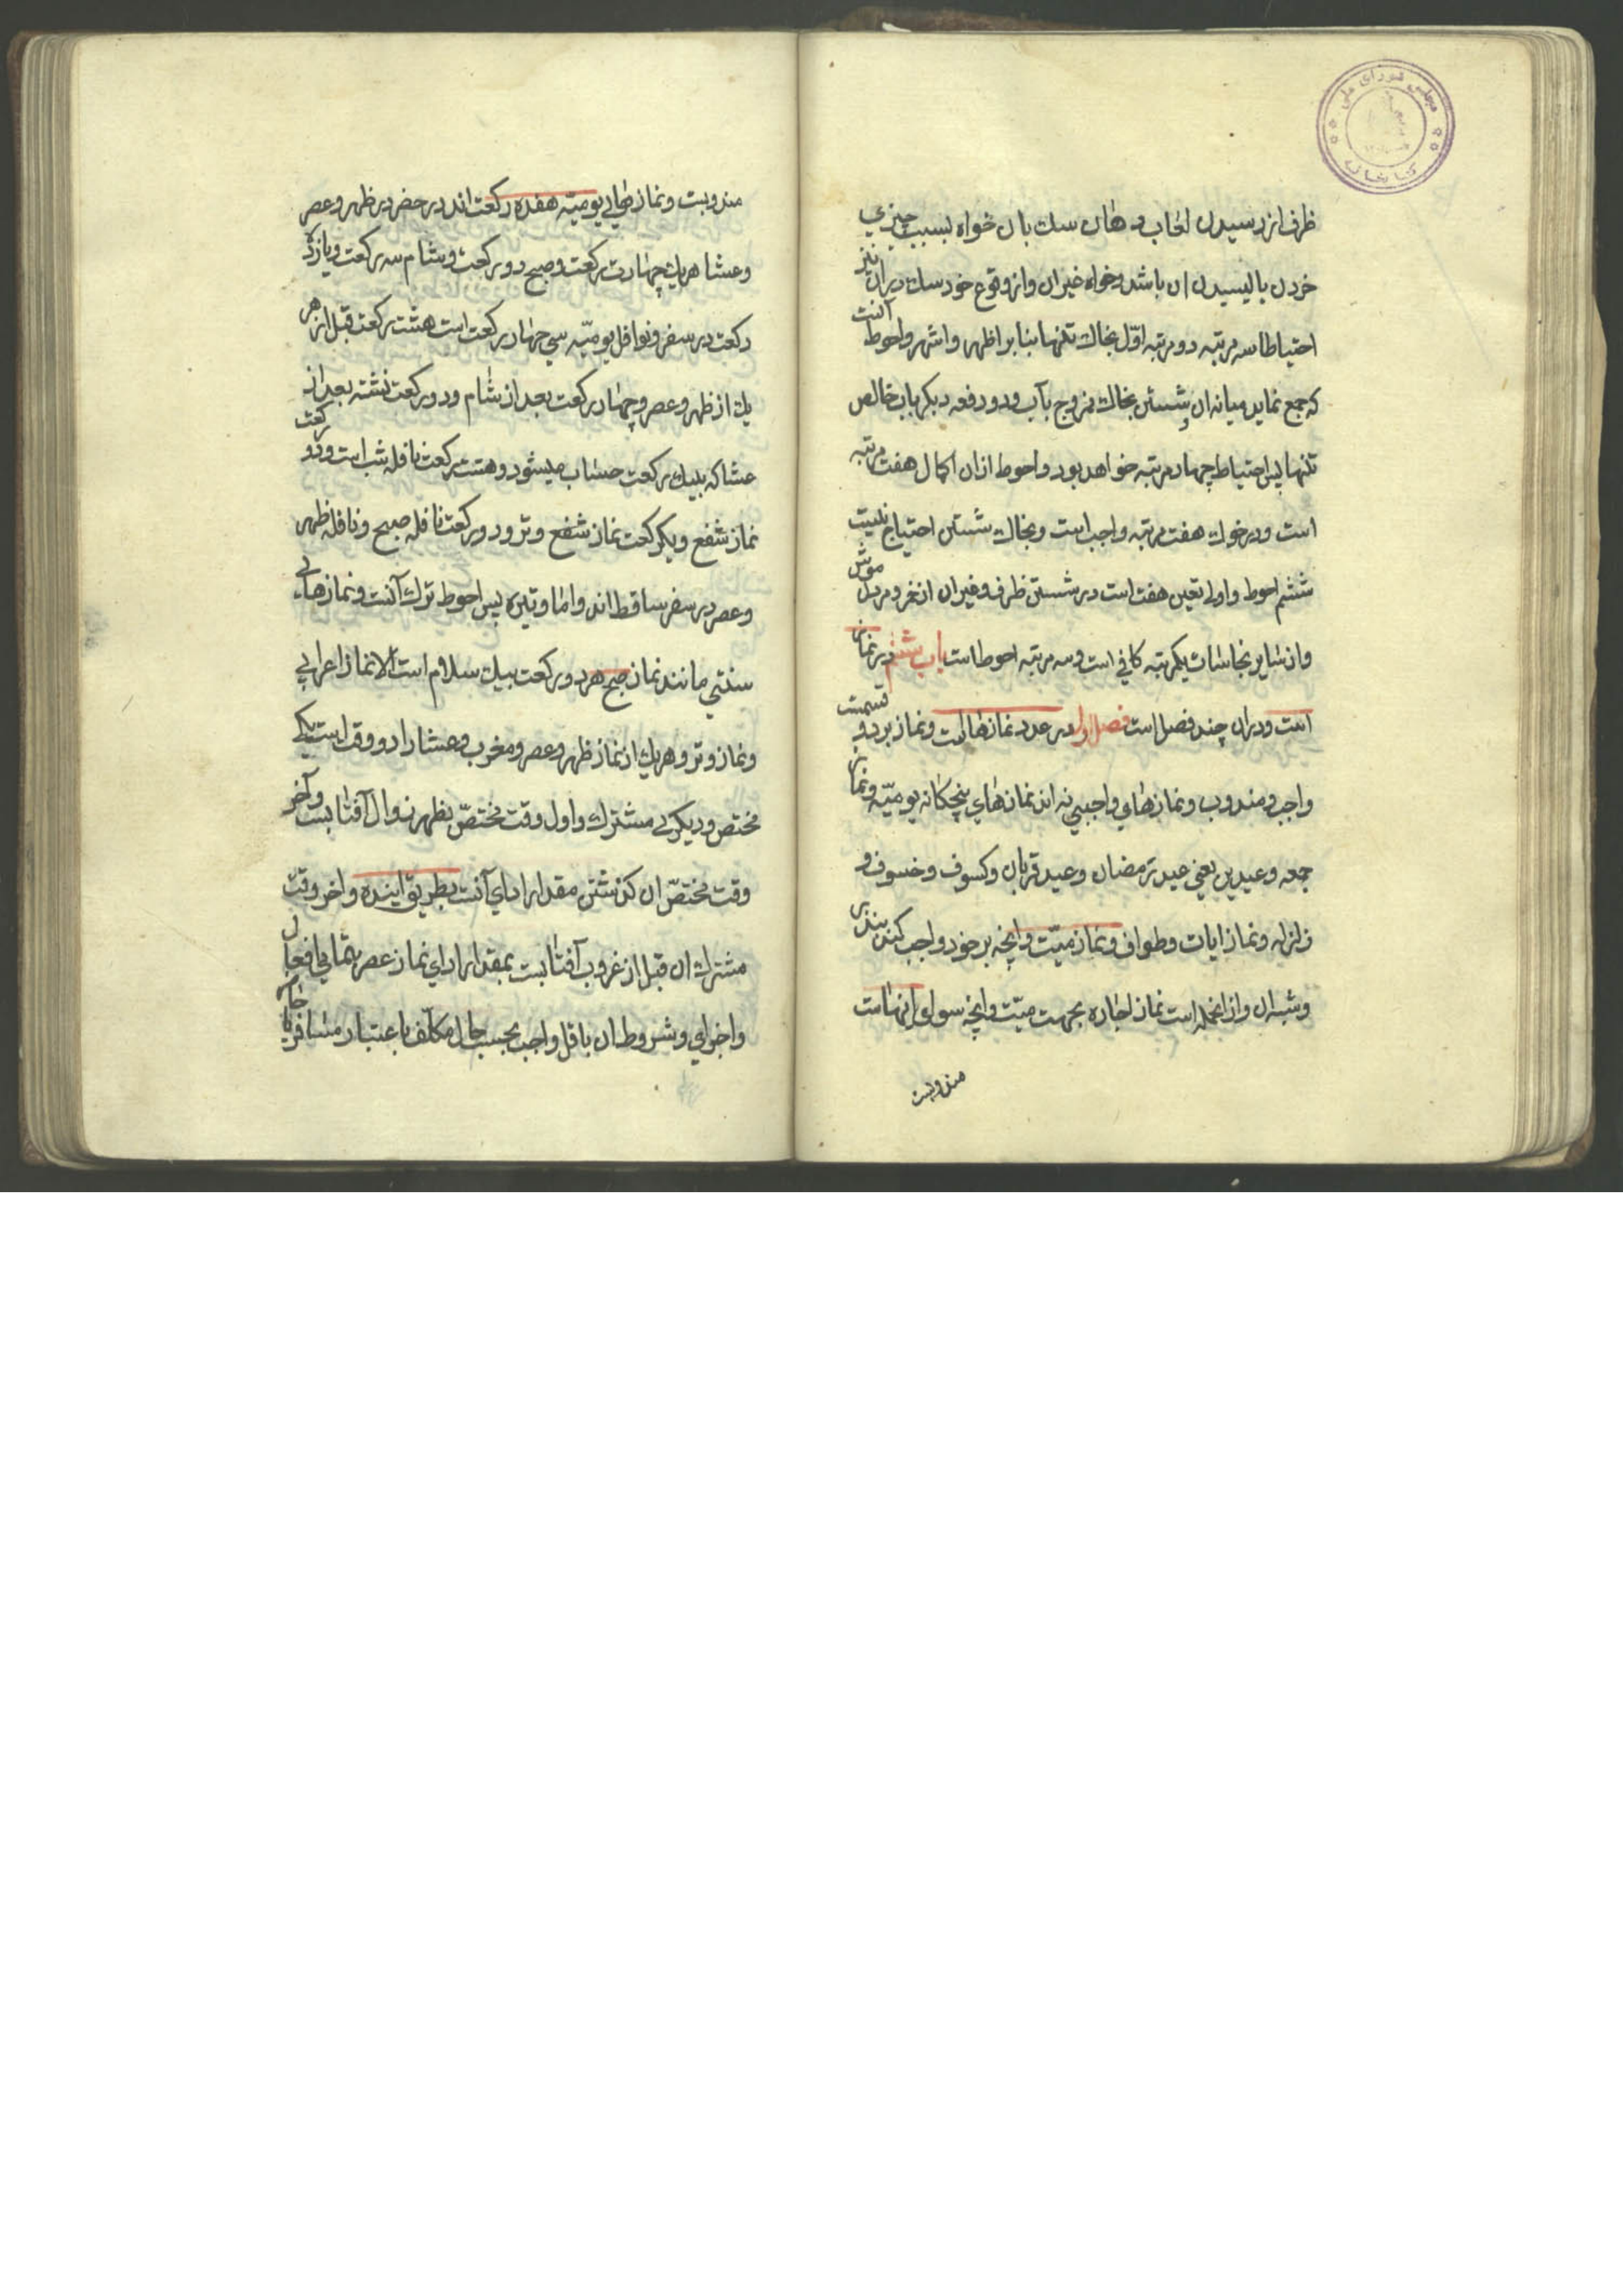 مجلس شورای ملی
کتابخانه
ظرف از رسیدن لعاب دهان سك بان خواه بسبب چیزي
خردن یا لیسیدن ان باشد وخواه غیر ان واز وقوع خود سك در ان نیز
احتیاطا سه مرتبه دو مرتبه اوّل بخاك تنها بنا بر اظهر واشهر واحوط آنست
که جمع نماید میانه ان وشستن بخاك ممزوج بآب ودو دفعه دیکر باب خالص
تنها پس احتیاط چهار مرتبه خواهد بود واحوط ازان اکمال هفت مرتبه
است ودر خوك هفت مرتبه واجب است وبخاك شستن احتیاج نیست
ششم احوط واولی تعین هفت است در شستن ظرف وغیر ان از خمر ومردن موش
واز سایر نجاسات یکمرتبه کافی است وسه مرتبه احوط است باب ششم در نماز
است ودران چند فصل است فصل اول در عدد نمازها است ونماز بر دو قسمت
واجب ومندوب ونمازهاي واجبی نه اند نمازهاي پنجکانه یومیّه ونماز
جمعه وعیدین یعنی عید رمضان وعید قربان وکسوف وخسوف و
زلزله ونماز ایات وطواف ونماز میّت وانچه بر خود واجب کند بنذر
وشبه ان وازانجمله است نماز اجاره بجهت میّت وانچه سوای اینهاست
مندوبست
مندوبست ونمازهاي یومیّه هفده رکعت اند در حضر در ظهر وعصر
وعشا هریك چهار رکعت وصبح دو رکعت وشام سه رکعت ویازده
رکعت در سفر ونوافل یومیّه سي چهار رکعت است هشت رکعت قبل از هر
یك از ظهر وعصر وچهار رکعت بعد از شام ودو رکعت نشسته بعد از
عشا که بیك رکعت حساب میشود وهشت رکعت نافله شب است ودو رکعت
نماز شفع ویکرکعت نماز شفع وتر ودو رکعت نافله صبح ونافله ظهر
وعصر در سفر ساقط اند واما وتیره پس احوط ترك آنست ونمازهاي
سنتي مانند نماز صبح هر دو رکعت بیك سلام است الا نماز اعرابي
ونماز وتر وهریك از نماز ظهر وعصر ومغرب وعشا را دو وقت است یکي
مختص ودیکري مشترك واول وقت مختصّ بظهر زوال آفتابست وآخر
وقت مختصّ ان کذشتن مقدار اداي آنست بطریق اینده واخر وقت
مشترك ان قبل از غروب آفتابست بمقدار اداي نماز عصر بتمامي افعال
واجزاي وشروط ان باقل واجب بحسب حال مکلّف باعتبار مسافر یا حاضر